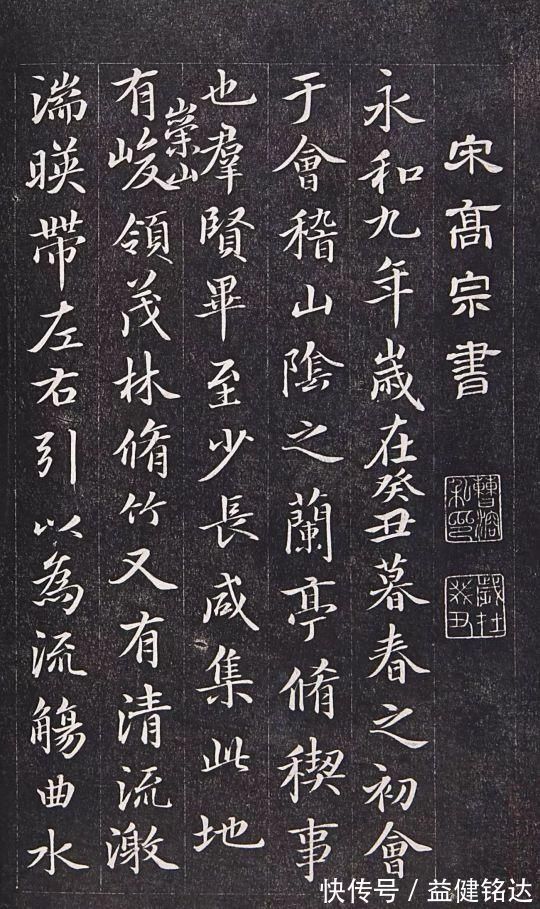 宋高宗書
曹溶私印
歲在癸丑
永和九年歲在癸丑暮春之初會
于會稽山陰之蘭亭脩稧事
也羣賢畢至少長咸集此地
有崇山峻領茂林脩竹又有清流激
湍暎帶左右引以為流觴曲水
快传号 / 益健铭达